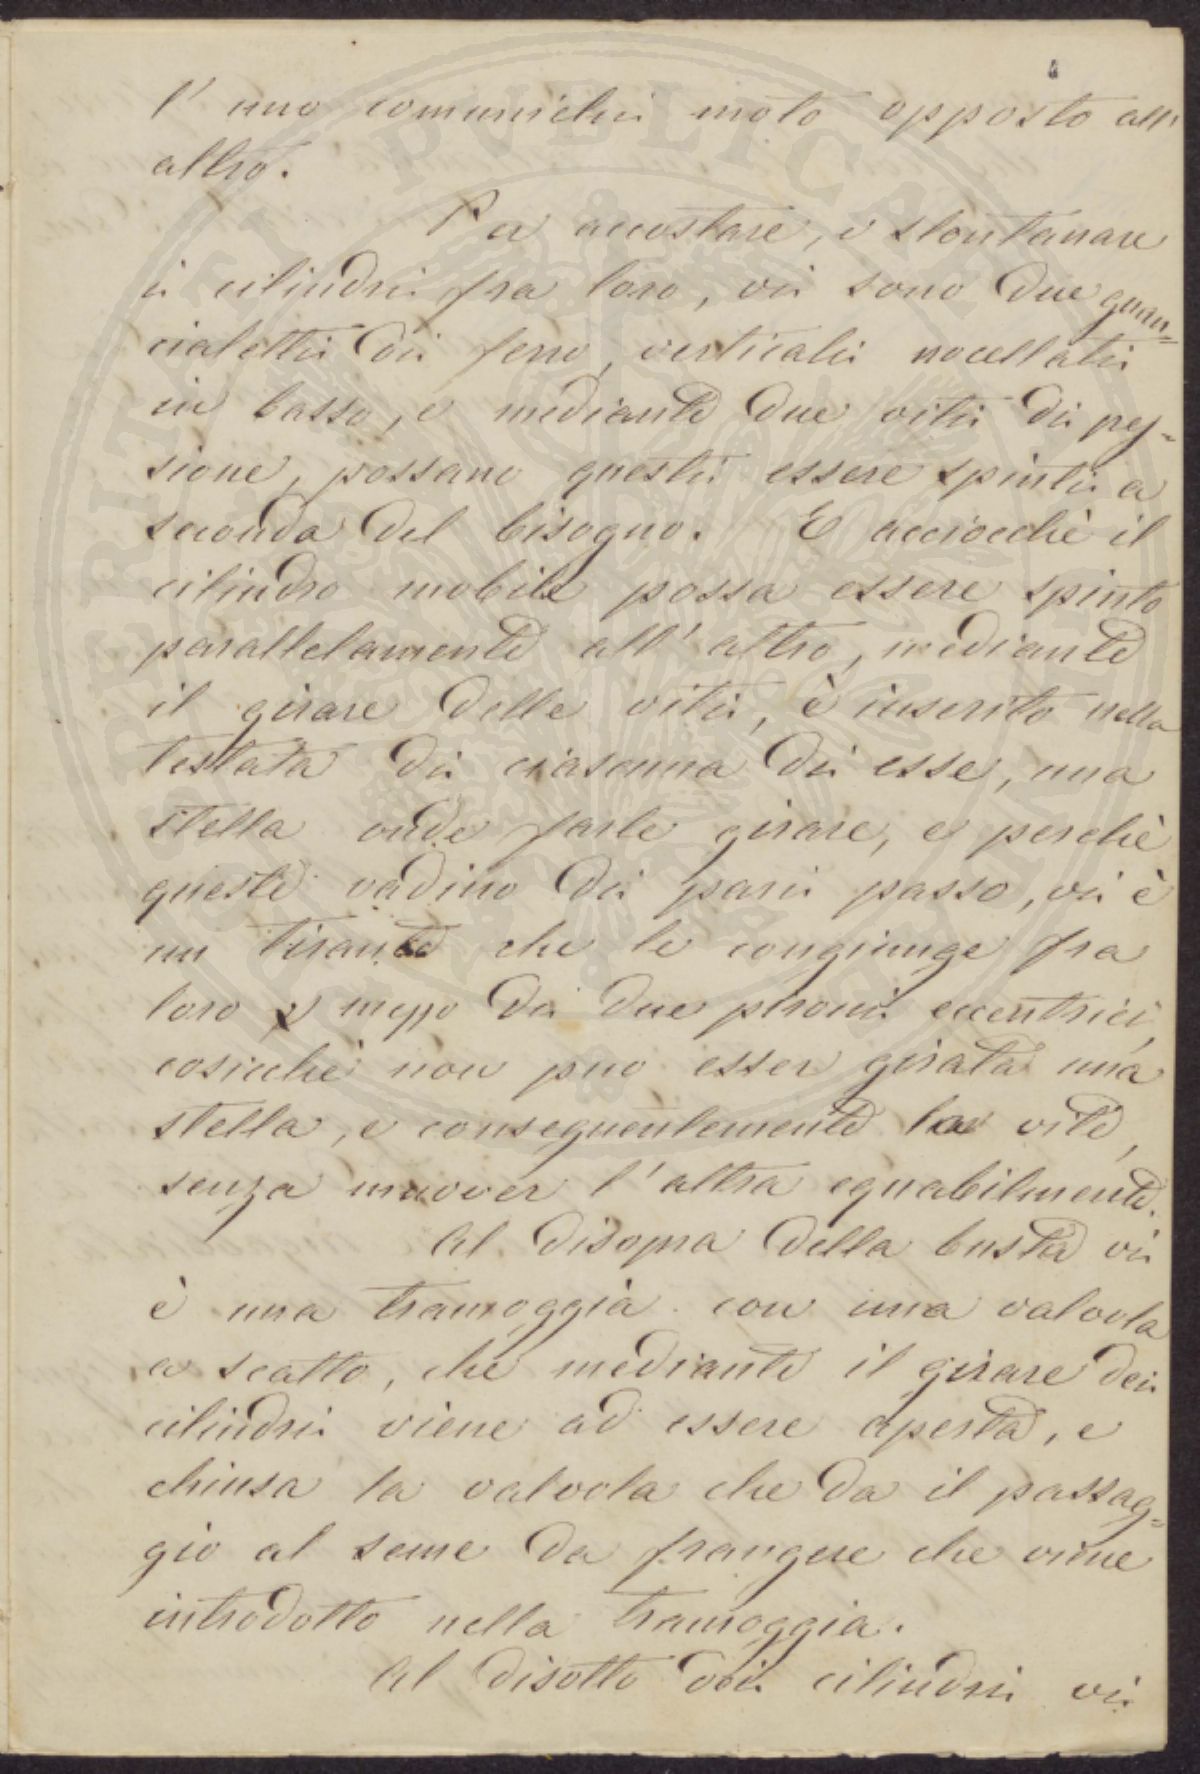 l'uno comunichi moto opposto all'
altro.
Per accostare, e slontanare
i cilindri fra loro, vi sono due guan=
cialetti di ferro, verticali nocellati
in basso, e mediante due viti di pres=
sione, possano questi essere spinti a
seconda del bisogno. E acciocchè il
cilindro mobile possa essere spinto
parallelamente all'altro, mediante
il girare delle viti, è inserito nella
testata di ciascuna di esse, una
stella onde farle girare, e perchè
queste vadino di pari passo, vi è
un tirante che le congiunge fra
loro mezzo di due pironi eccentrici,
cosicchè non può esser girata una
stella, e conseguentemente la vite,
senza muover l'altra equabilmente.
Al disopra della busta vi
è una tramoggia con una valvola
a scatto, che mediante il girare dei
cilindri viene ad essere aperta, e
chiusa la valvola che da il passag=
gio al seme da frangere che viene
introdotto nella tramoggia.
Al disotto dei cilindri vi
PUBLICAE